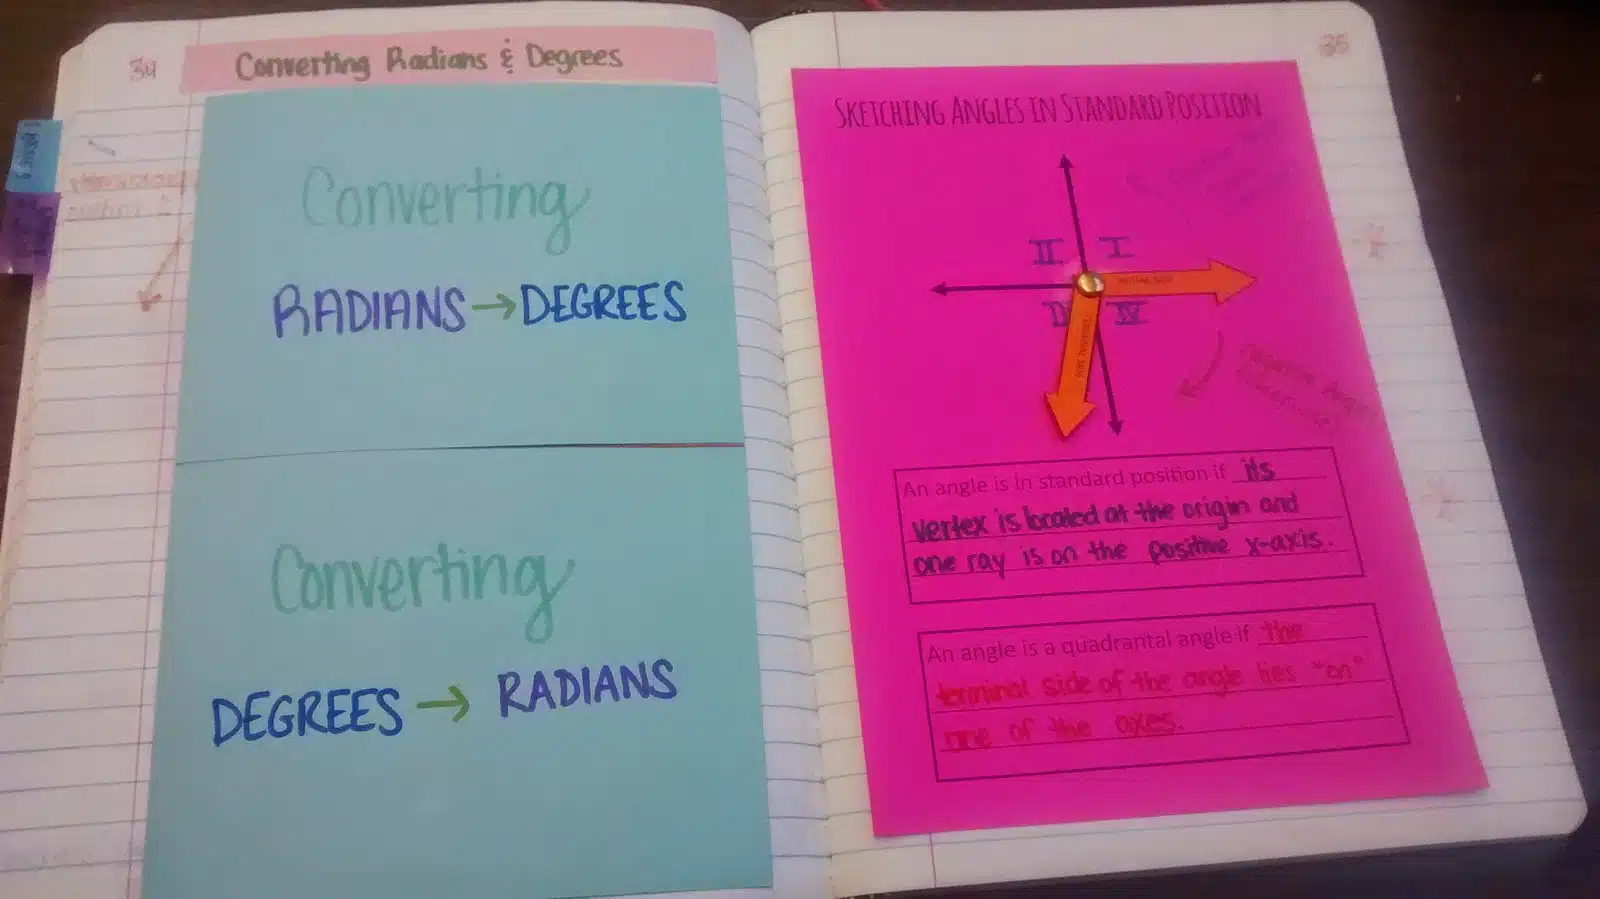 34
Converting Radians & Degrees
Converting
RADIANS → DEGREES
Converting
DEGREES → RADIANS
35
SKETCHING ANGLES IN STANDARD POSITION
II I
IV
An angle is in standard position if its
vertex is located at the origin and
one ray is on the positive x-axis.
An angle is a quadrantal angle if the
terminal side of the angle lies "on"
one of the axes.